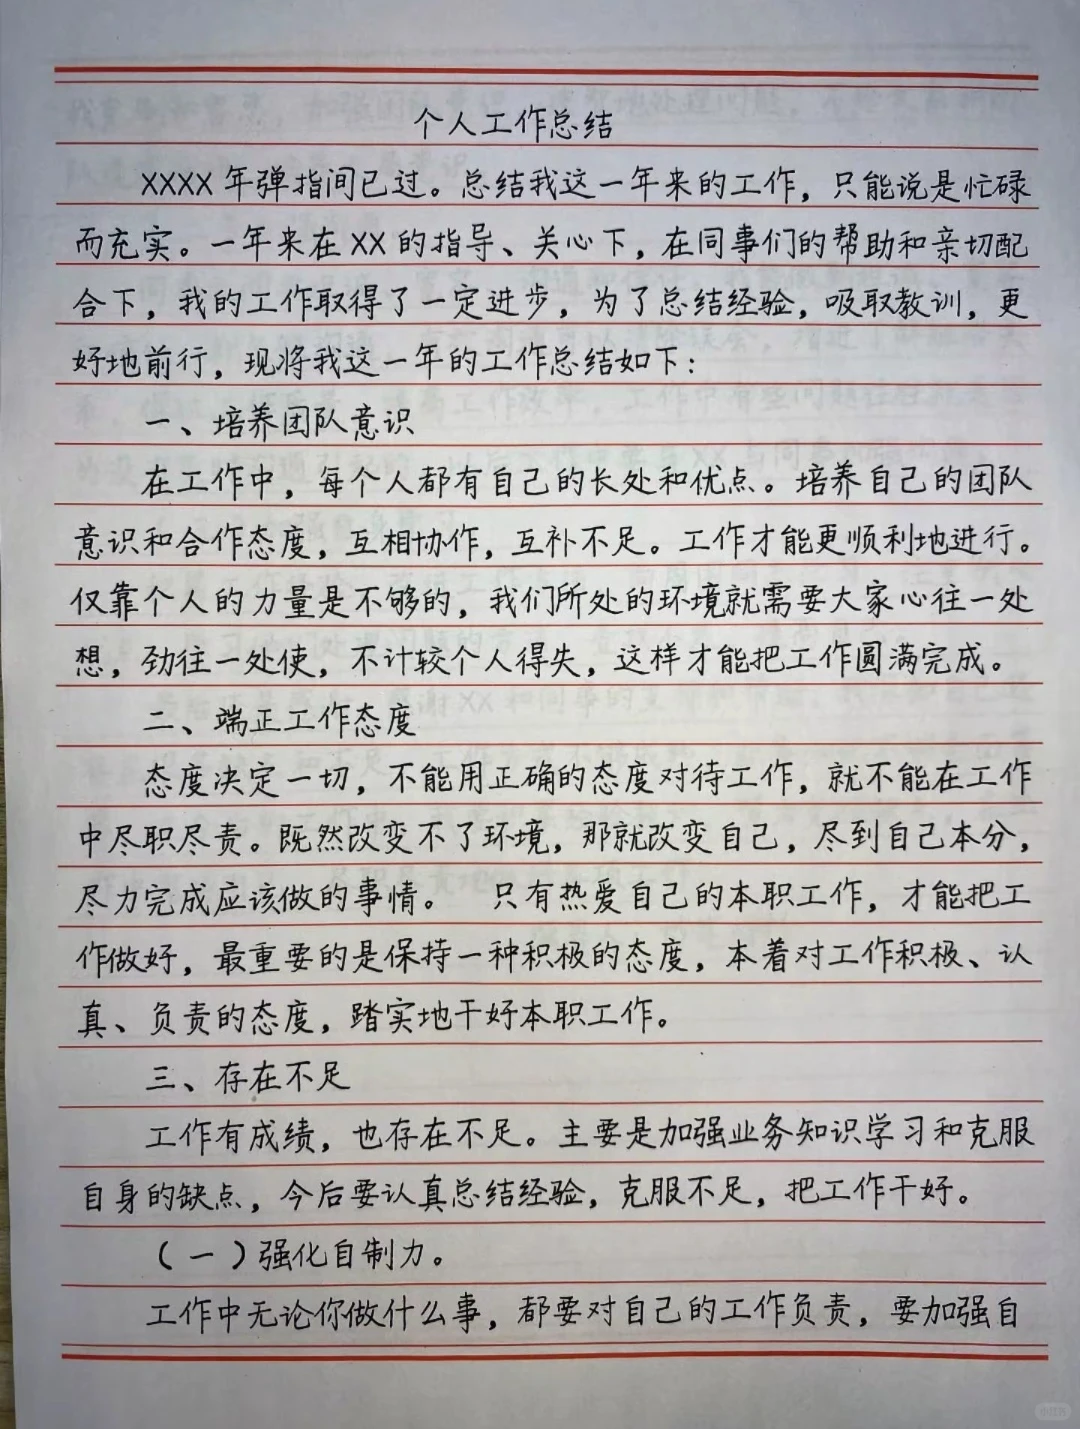 个人工作总结
XXXX年弹指间已过。总结我这一年来的工作，只能说是忙碌
而充实。一年来在XX的指导、关心下，在同事们的帮助和亲切配
合下，我的工作取得了一定进步，为了总结经验，吸取教训，更
好地前行，现将我这一年的工作总结如下：
一、培养团队意识
在工作中，每个人都有自己的长处和优点。培养自己的团队
意识和合作态度，互相协作，互补不足。工作才能更顺利地进行。
仅靠个人的力量是不够的，我们所处的环境就需要大家心往一处
想，劲往一处使，不计较个人得失，这样才能把工作圆满完成。
二、端正工作态度
态度决定一切，不能用正确的态度对待工作，就不能在工作
中尽职尽责。既然改变不了环境，那就改变自己，尽到自己本分，
尽力完成应该做的事情。 只有热爱自己的本职工作，才能把工
作做好，最重要的是保持一种积极的态度，本着对工作积极、认
真、负责的态度，踏实地干好本职工作。
三、存在不足
工作有成绩，也存在不足。主要是加强业务知识学习和克服
自身的缺点，今后要认真总结经验，克服不足，把工作干好。
（一）强化自制力。
工作中无论你做什么事，都要对自己的工作负责，要加强自